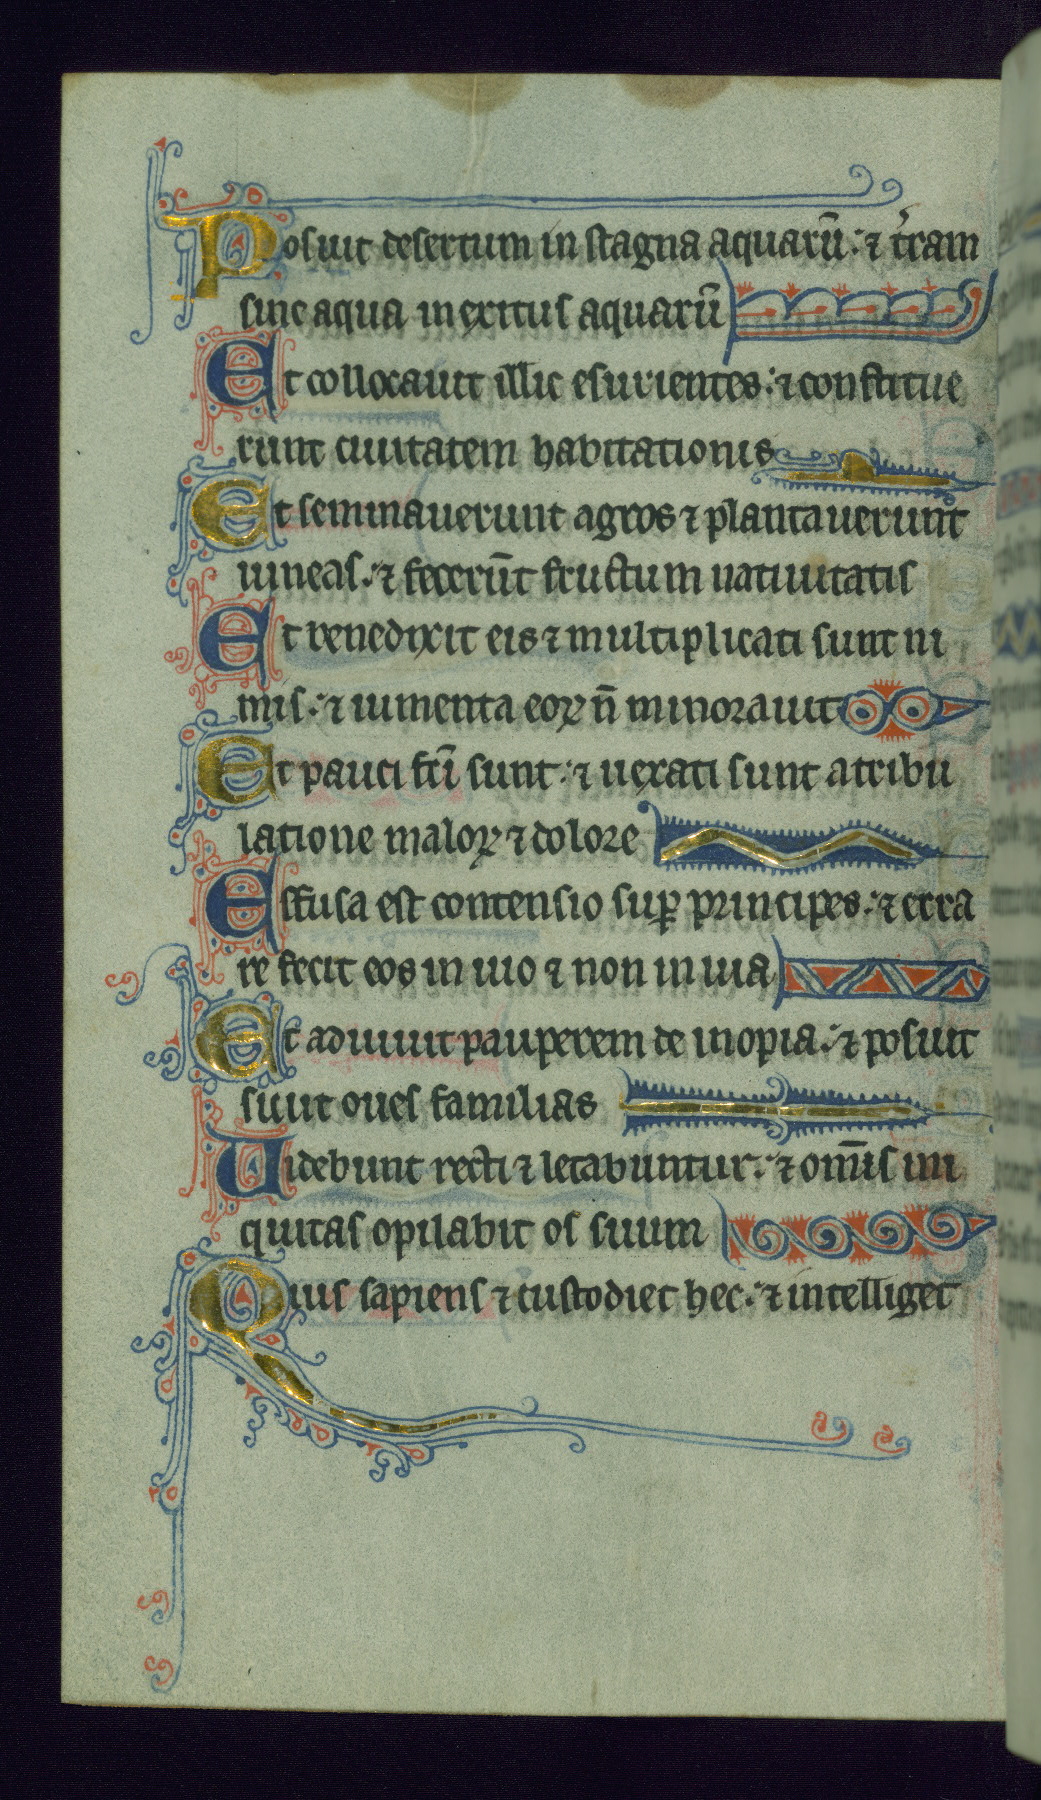 Posuit desertum in stagna aquarū: ⁊ t̓ram
sine aqua in exitus aquarū
Et collocauit illic esurientes: ⁊ constitue
runt ciuitatem habitationis
Et seminauerunt agros ⁊ plantauerunt
uineas: ⁊ fecerūt fructum natiuitatis
Et benedixit eis ⁊ multiplicati sunt ni
mis: ⁊ iumenta eoꝝ n̄ minorauit
Et pauci fc̄i sunt: ⁊ uexati sunt a tribu
latione maloꝝ ⁊ dolore
Effusa est contensio suꝑ principes: ⁊ erra
re fecit eos in inuio ⁊ non in uia
Et adiuuit pauperem de inopia: ⁊ posuit
sicut oues familias
Uidebunt recti ⁊ letabuntur: ⁊ om̄is ini
quitas opilabit os suum
Quis sapiens ⁊ custodiet hec: ⁊ intelliget